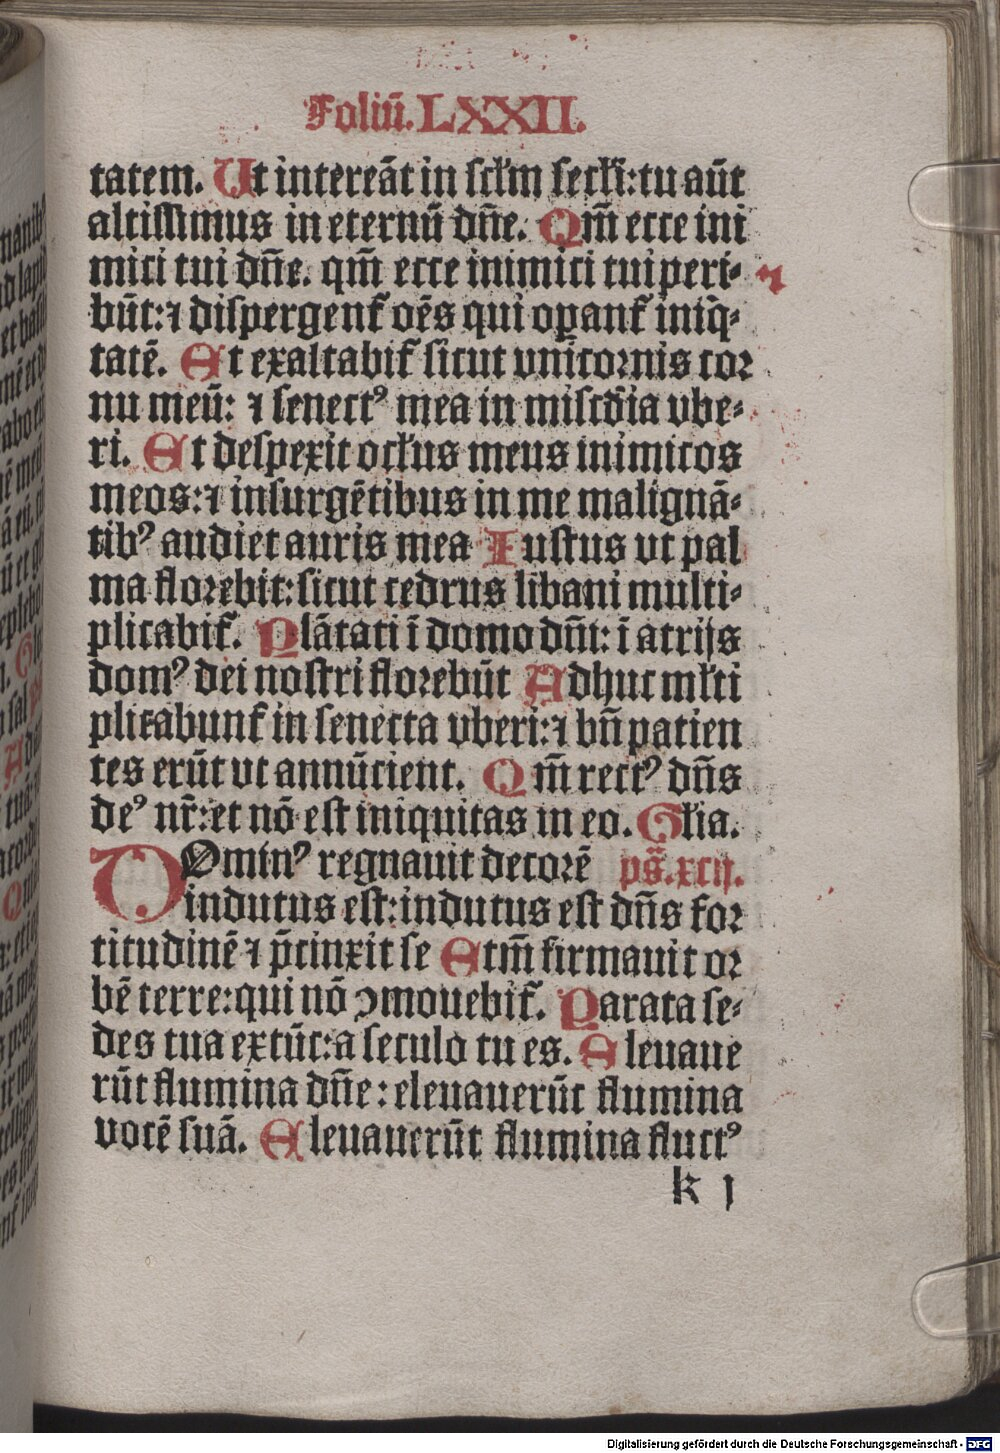 Foliū. LXXII.
tatem. Ut intereāt in scłm secłi: tu aūt
altissimus in eternū dn̄e. Qm̄ ecce ini
mici tui dn̄e. qm̄ ecce inimici tui peri-
būt: ⁊ dispergent̄ oēs qui oꝑant̄ iniq̄-
tatē. Et exaltabit̄ sicut vnicornis cor
nu meū: ⁊ senectꝰ mea in misc̄dia vbe-
ri. Et despexit ocłus meus inimicos
meos: ⁊ insurgētibus in me malignā-
tibꝰ audiet auris mea Iustus vt pal
ma florebit: sicut cedrus libani multi-
plicabit̄. Plātati ī domo dn̄i: ī atrijs
domꝰ dei nostri florebūt Adhuc młti
plicabunt̄ in senecta vberi: ⁊ bn̄ patien
tes erūt vt annūcient. Qm̄ rectꝰ dn̄s
deꝰ nr̄: et nō est iniquitas in eo. Głia.
DOminꝰ regnauit decorē ps̄. xcij.
indutus est: indutus est dn̄s for
titudinē ⁊ p̄cinxit se Etm̄ firmauit or
bē terre: qui nō ꝯmouebit̄. Parata se-
des tua extūc: a seculo tu es. Eleuaue
rūt flumina dn̄e: eleuauerūt flumina
vocē suā. Eleuauerūt flumina fluctꝰ
k j
Digitalisierung gefördert durch die Deutsche Forschungsgemeinschaft - DFG